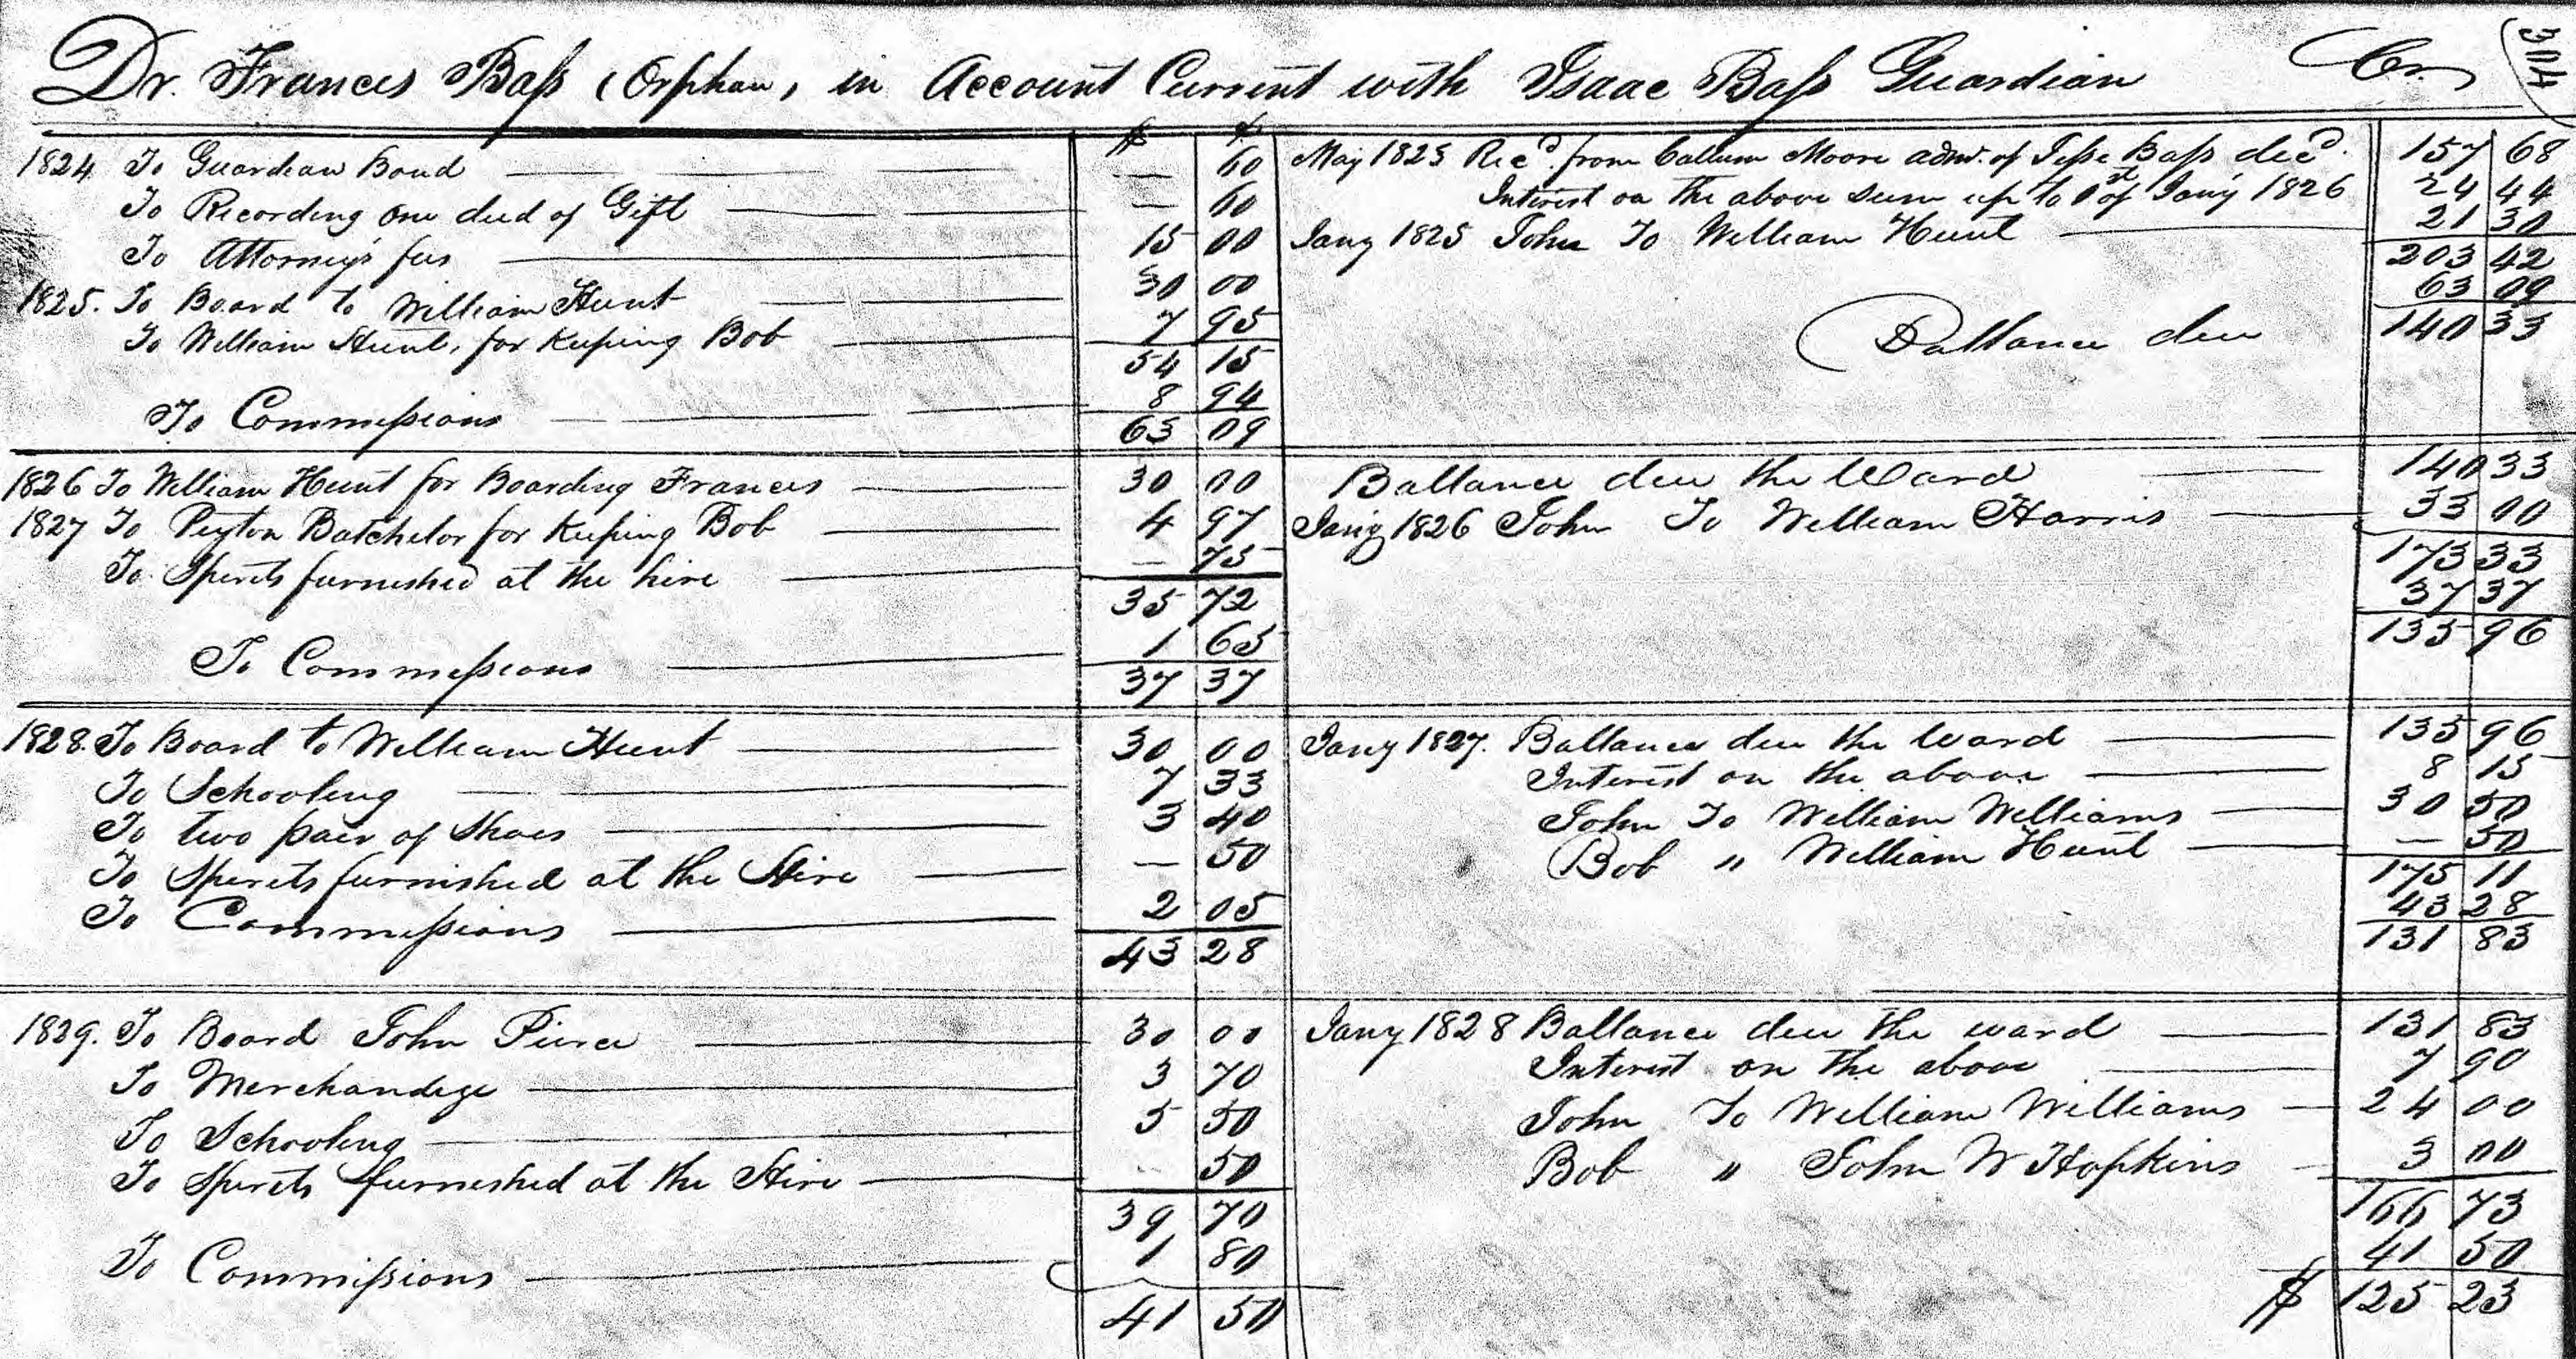 304
Dr. Frances Bass (Orphan, in Account Current with Isaac Bass Guardian Cr.
$ ¢
1824 To Guardean Bond — 60
To Recording one deed of Gift — 60
To Attorney's fees 15 00
1825. To Board to William Hunt 30 00
To William Hunt, for Keeping Bob 7 95
54 15
To Commissions 8 94
63 09
May 1825 Recd. from Callum Moore admr. of Jesse Bass decd. 157 68
Interest on the above sum up to 1st of Jany 1826 24 44
Jany 1825 John To William Hunt 21 30
203 42
63 09
Ballance due 140 33
1826 To William Hunt for Boarding Frances 30 00
1827 To Peyton Batchelor for Keeping Bob 4 97
To Spirits furnished at the hire — 75
35 72
To Commissions 1 65
37 37
Ballance due the Ward 140 33
Jany 1826 John To William Harris 33 00
173 33
37 37
135 96
1828. To Board to William Hunt 30 00
To Schooling 7 33
To two pair of Shoes 3 40
To Spirits furnished at the Hire — 50
To Commissions 2 05
43 28
Jany 1827. Ballance due the Ward 135 96
Interest on the above 8 15
John To William Williams 30 50
Bob " William Hunt — 50
175 11
43 28
131 83
1829. To Board John Pierce 30 00
To Merchandize 3 70
To Schooling 5 50
To Spirits furnished at the Hire — 50
39 70
To Commissions 1 80
41 50
Jany 1828 Ballance due the ward 131 83
Interest on the above 7 90
John To William Williams 24 00
Bob " John W Hopkins 3 00
166 73
41 50
$ 125 23